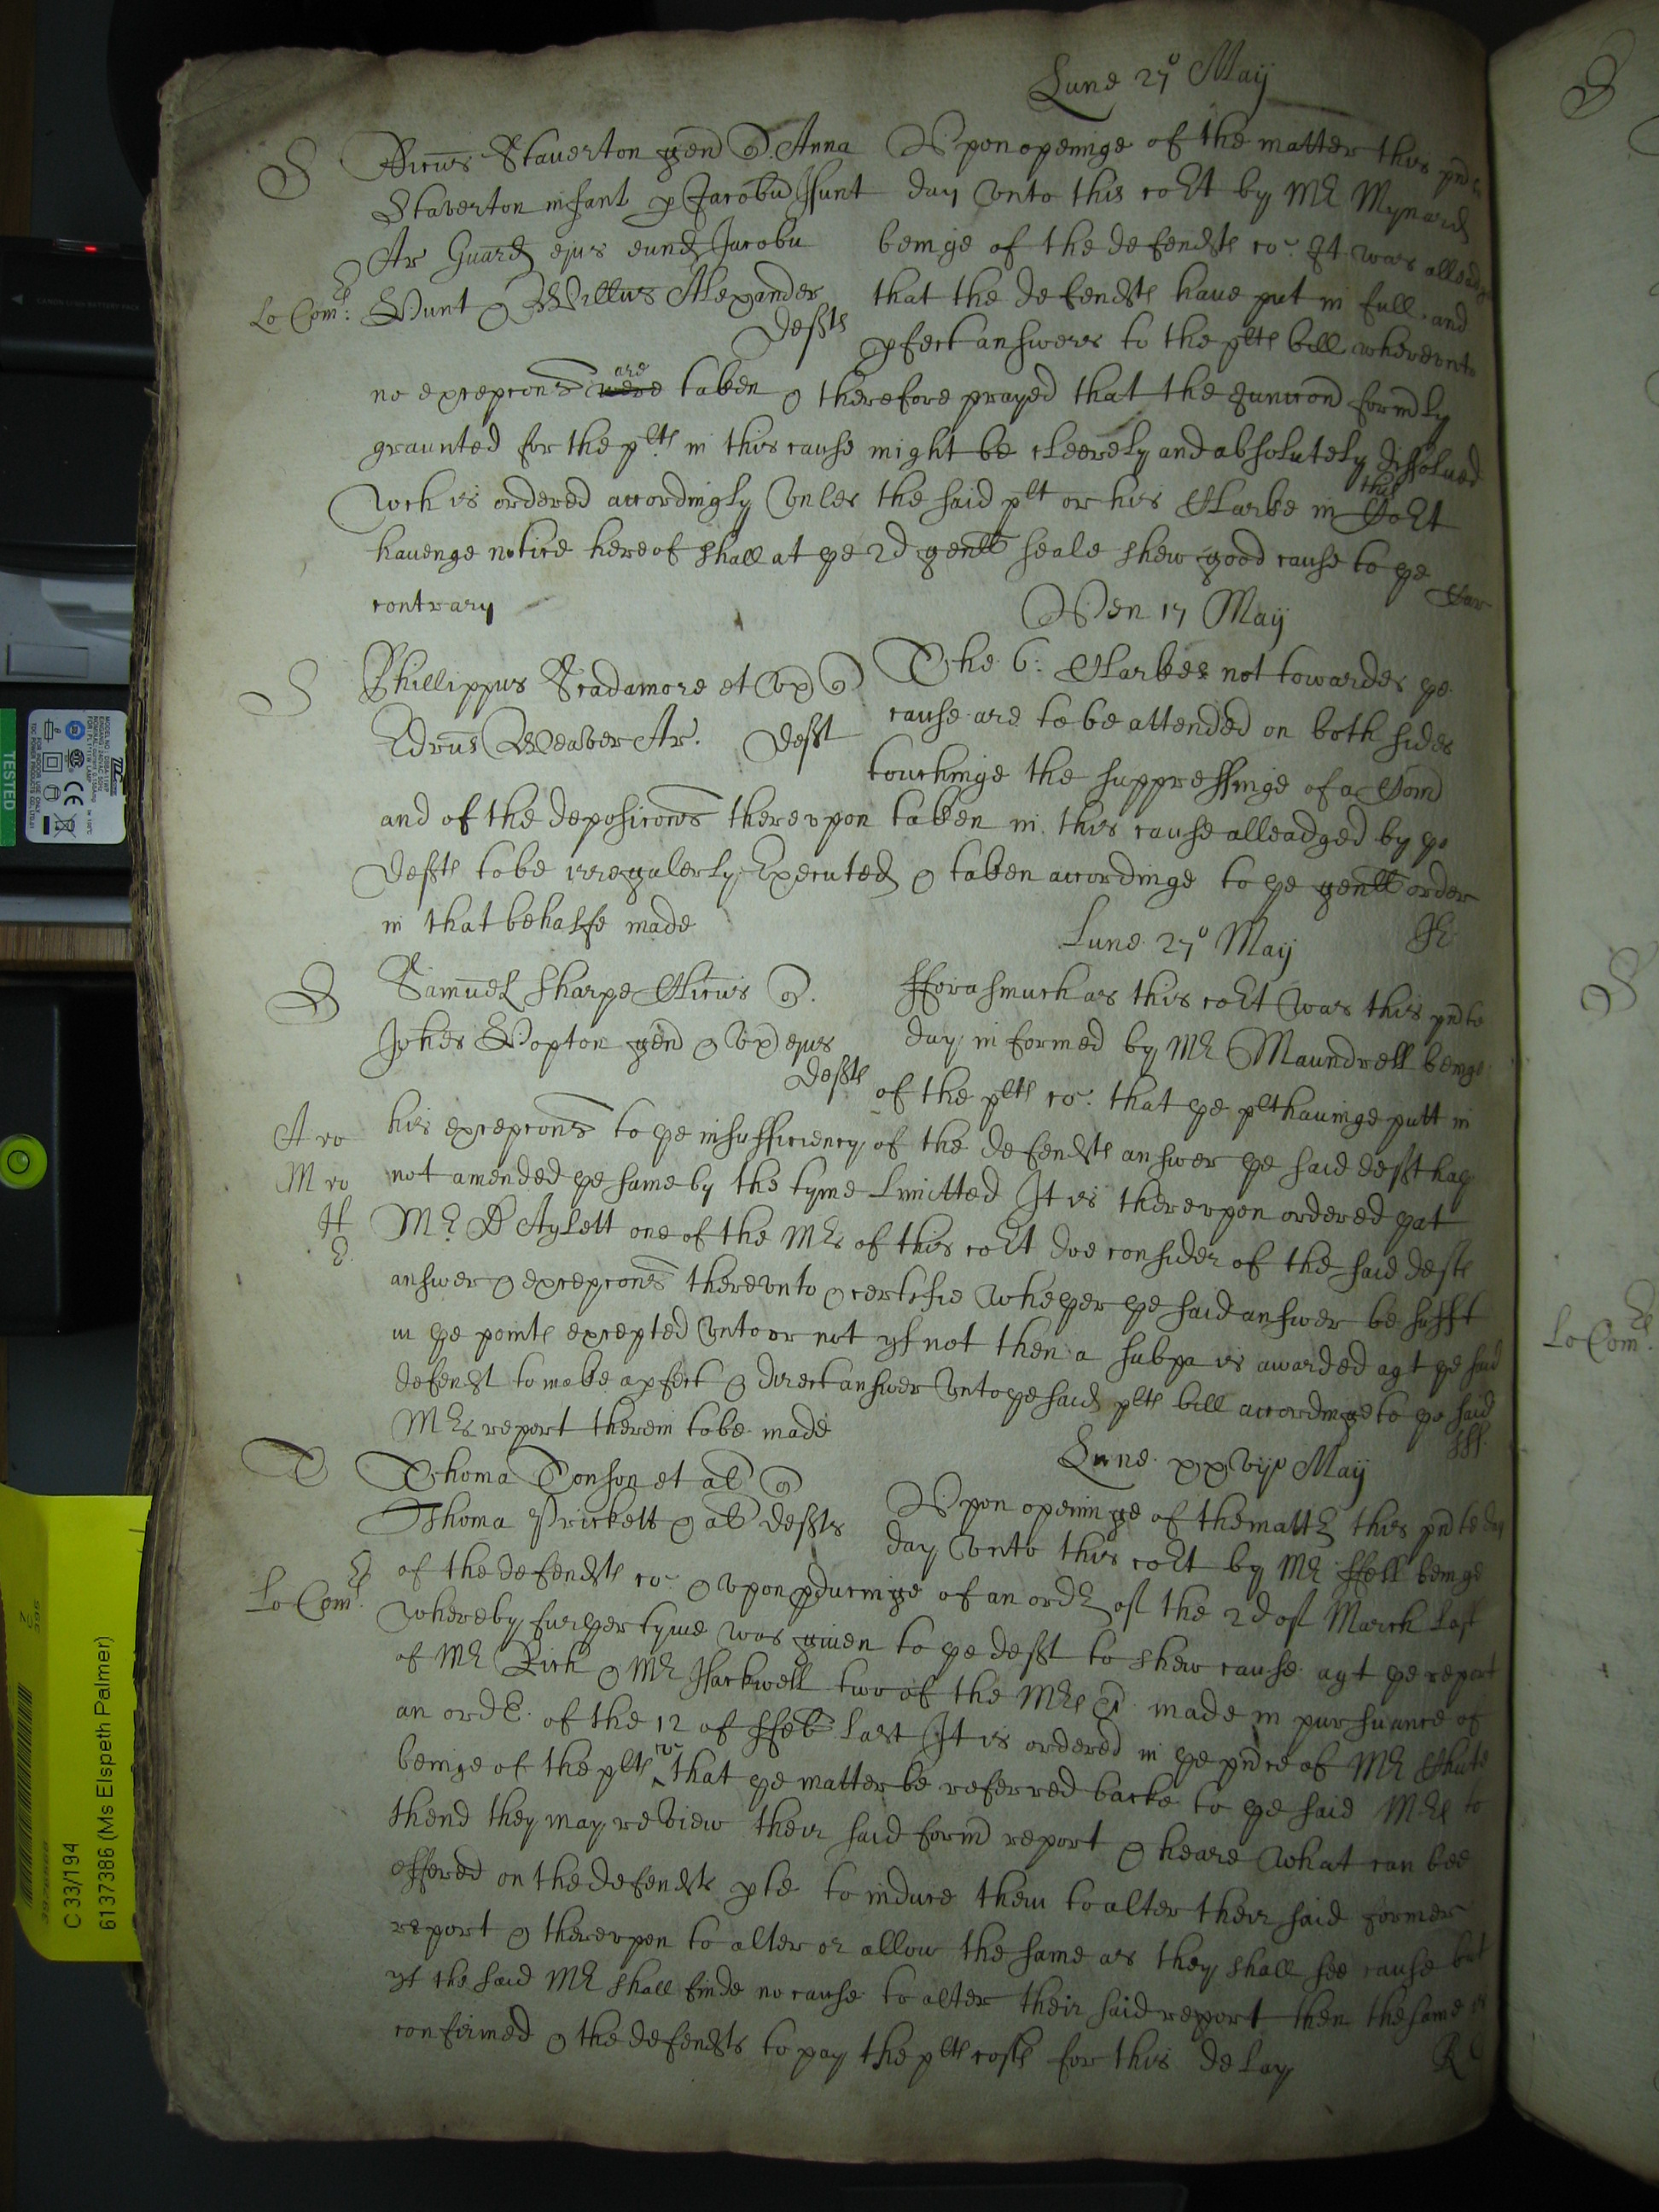 Lune 27o Maij
S
Ricus Staverton gen v Anna
Staverton infant p Jacobu Hunt
Ar Guard ejus eund Jacobu
Lo Com: Hunt & Willus Alexander
Defts
Vpon openinge of the matter this pnte
day vnto this cort by Mr Mynard
beinge of the defendts co: It was alleadg
that the defendts haue put in full and
pfect answers to the plts bill wherevnto
no excepcons were are taken & therefore prayed that the Iuniccon formly
graunted for the plts in this cause might be cleerely and absolutely dissolued
wch is ordered accordingly vnles the said plt or his Clarke in this Cort
hauenge notice hereof shall at ye 2d genll seale shew good cause to ye
contrary
Wen 17 Maij
S
Phillippus Scudamore et vx v
Edrus Weaver Ar. Deft
The 6: Clarkes not towardes ye
cause are to be attended on both sides
touchinge the suppressinge of a Com
and of the deposicons therevpon taken in this cause alleadged by ye
Defts to be irregulerly Executed & taken accordinge to ye genll order
in that behalfe made
Lune 27o Maij
S
Samuel Sharpe Clicus v.
Johes Hopton gen & vx ejus
Defts
fforasmuch as this cort was this pnte
day informed by Mr Maundrell beinge
of the plts co: that ye plt hauinge putt in
his excepcons to ye insufficiency of the defendts answer ye said deft hay
A ro
M ro
not amended ye same by the tyme limitted It is therevpon ordered yat
H
Mr D Aylett one of the Mrs of this cort doe consider of the said defts
answer & excepcons therevnto & certifie wheyer ye said answer be sufft
in ye points excepted vnto or not yf not then a subpa is awarded agt ye said
defendt to make a pfect & direct answer vnto ye said plts bill accordinge to ye said
Mrs report therein to be made
Lune xxvijo Maij
Thoma Tonson et al v
Thoma Prickett & al Defts
Vpon openinge of the mattr this pnte day
day vnto this cort by Mr ffell beinge
Lo Com:
of the defendts co: & vpon pducinge of an ordr of the 2d of March last
whereby furyer tyme was giuen to ye deft to shew cause agt ye report
of Mr Rich & Mr Hackwell two of the Mrs made in pursuance of
an ordr of the 12 of ffeb last It is ordered in ye pnce of Mr Chute
beinge of the plts co that ye matter be referred backe to ye said Mrs to
thend they may review their said form report & heare what can bee
offered on the defendts pte to induce them to alter their said former
report & therevpon to alter or allow the same as they shall see cause but
yf the said Mr shall finde no cause to alter their said report then the same is
confirmed & the defendts to pay the plts costs for this delay
TESTED
C 33/194
6137386 (Ms Elspeth Palmer)
Lo Com: